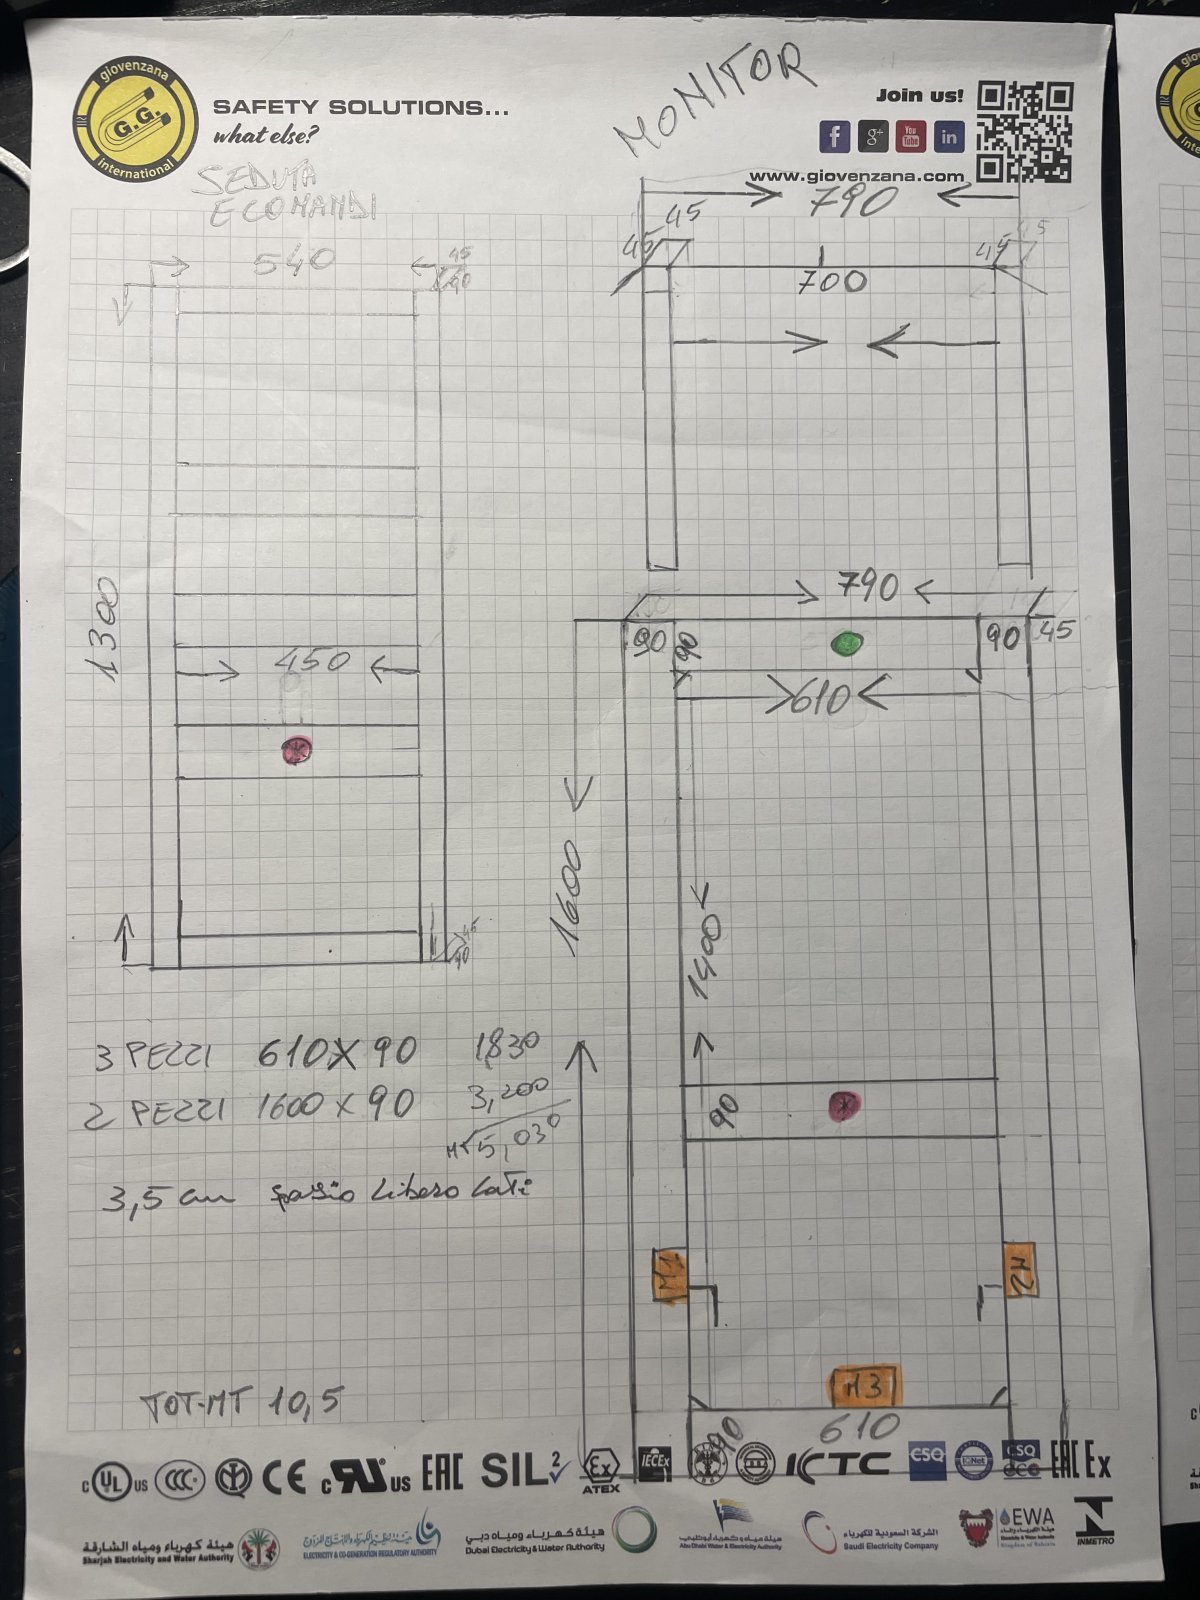 giovenzana
G.G.
international
SAFETY SOLUTIONS...
what else?
MONITOR
Join us!
f g+ You Tube in
www.giovenzana.com
SEDUTA
E COMANDI
790
45
45
45
540
45
90
700
790
90
90
90
45
610
1300
450
1600
1400
90
45
90
3 PEZZI 610X90 1,830
2 PEZZI 1600X90 3,200
MT 5,030
3,5 cm spazio libero lati
M1
M2
M3
610
90
TOT-MT 10,5
c UL US CCC CE c RU US EAC SIL 2 Ex ATEX IECEx KTC CSQ IQNet CSQ ECO EAC Ex
هيئة كهرباء ومياه الشارقة
Sharjah Electricity and Water Authority
ELECTRICITY & CO-GENERATION REGULATORY AUTHORITY
هيئة كهرباء ومياه دبي
Dubai Electricity & Water Authority
هيئة مياه وكهرباء أبوظبي
Abu Dhabi Water & Electricity Authority
الشركة السعودية للكهرباء
Saudi Electricity Company
EWA
هيئة الكهرباء والماء
Electricity & Water Authority
Kingdom of Bahrain
INMETRO